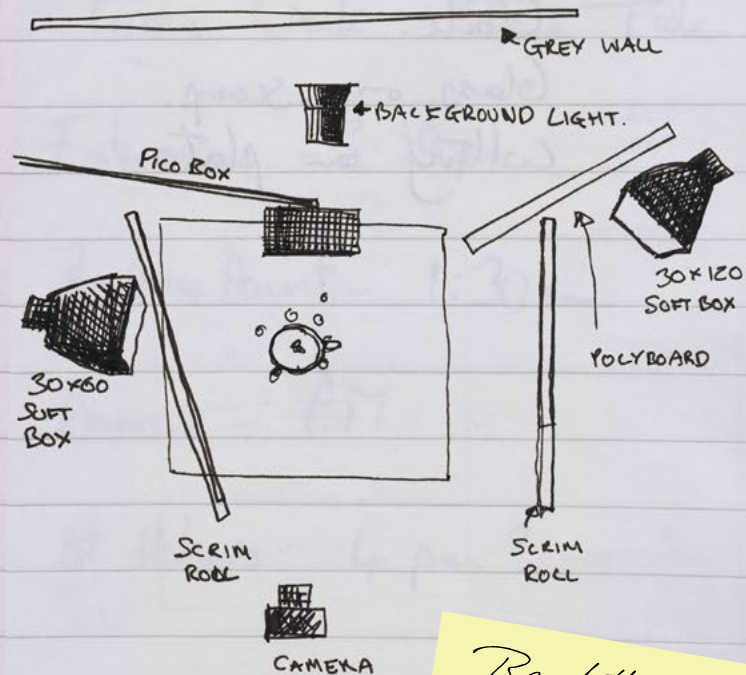 GREY WALL
BACKGROUND LIGHT.
PICO BOX
30×120
SOFT BOX
POLYBOARD
30×60
SOFT
BOX
SCRIM
ROLL
SCRIM
ROLL
CAMERA